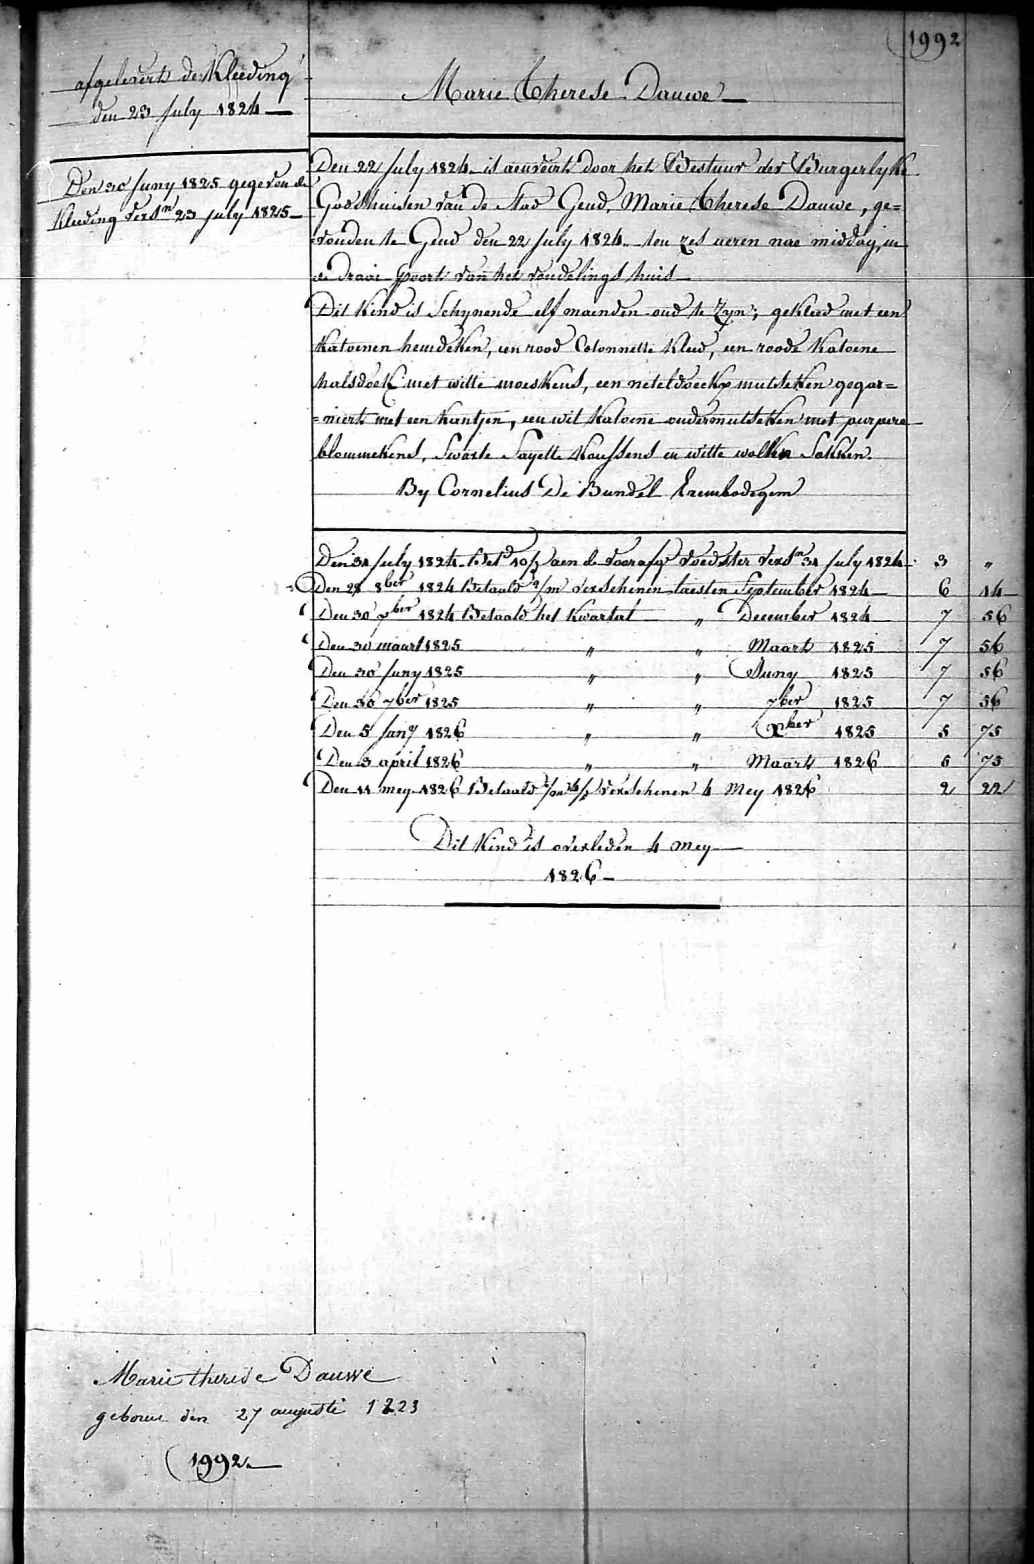 1992
afgelevert de Kleeding
den 23 july 1824
Den 30 Juny 1825 gegeven de
Kleeding versn 23 july 1825
Marie Therese Dauwe
Den 22 july 1824 is aenveirt door het Bestuur der Burgerlyke
Godshuisen van de stad Gend, Marie Therese Dauwe, ge=
=vonden te Gend den 22 july 1824 ten zes ueren nae middag, in
de draai poort van het vondelings huis
Dit Kind is Schynende elf maenden oud te Zyn; gekleed met een
Katoenen hemdeken, een rood Cotonnette Kleed, een roode Katoene
halsdoek met witte moeskens, een neteldoeckx mutseken gegar=
=niert met een Kantjen, een wit Katoene ondermutseken met purpere
blommekens, Swarte Sayette Koussens en witte wollen Sokken.
By Cornelius De Bundel Erembodegem
Den 31 july 1824 Betd 10/ aen de voorafg voedster versn 31 july 1824 3 "
Den 28 8ber 1824 Betaald /m verschenen laesten September 1824 6 14
Den 30 xber 1824 Betaald het Kwartael " December 1824 7 56
Den 30 maart 1825 " " Maart 1825 7 56
Den 30 juny 1825 " " Juny 1825 7 56
Den 30 7ber 1825 " " 7ber 1825 7 56
Den 5 jany 1826 " " Xber 1825 5 75
Den 3 april 1826 " " Maart 1826 5 75
Den 11 mey 1826 Betaald verschenen 4 Mey 1826 2 22
Dit Kind is overleden 4 mey
1826
Marie therese Dauwe
geboren den 27 augusti 1823
1992